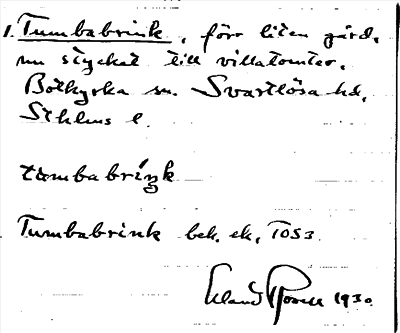 1. Tumbabrink, förr liten gård,
nu styckat till villatomter.
Botkyrka sn. Svartlösa hd,
Sthlms l.
tùmbabríŋk
Tumbabrink bek. ek. TOS3
Erland Rosell 1930